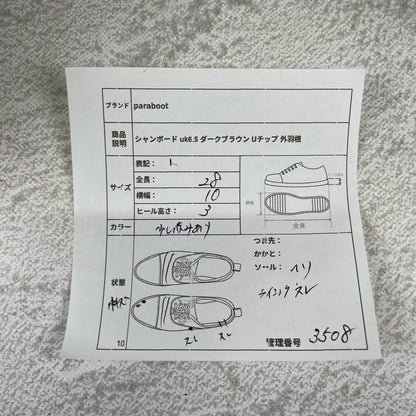 ブランド paraboot
商品説明 シャンボード uk6.5 ダークブラウン Uチップ 外羽根
サイズ
表記：
全長： 28
横幅： 10
ヒール高さ： 3
横幅
全長
カラー
状態
つま先：
かかと：
ソール： ヘリ
ライニング スレ
スレ スレ
10
管理番号 3508